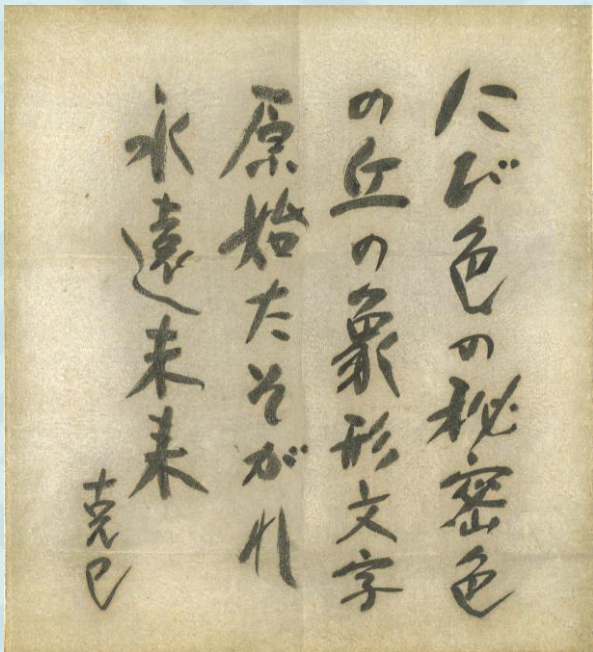 にび色の秘密色
の丘の象形文字
原始たそがれ
永遠未来
克巳